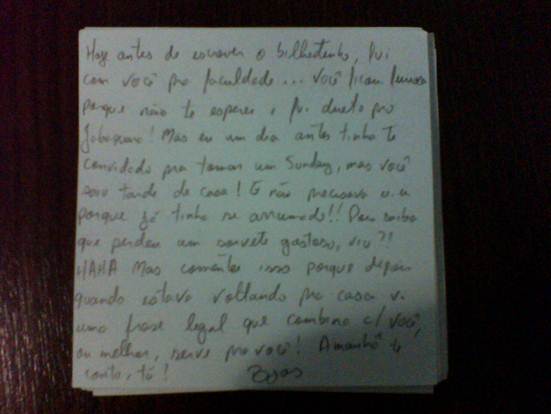 Hoje antes de escrever o bilhetinho, fui
com você pra faculdade... você ficou furiosa
porque não te esperei e fui direto pro
Jabaquara! Mas eu um dia antes tinha te
convidado pra tomar um Sunday, mas você
saiu tarde de casa! E não precisava
porque já tinha se arrumado!! Pois saiba
que perdeu um sorvete gostoso, viu?!
HAHA Mas comentei isso porque depois
quando estava voltando pra casa vi
uma frase legal que combina c/ você,
ou melhor, serve pra você! Amanhã te
conto, tá! Bjos